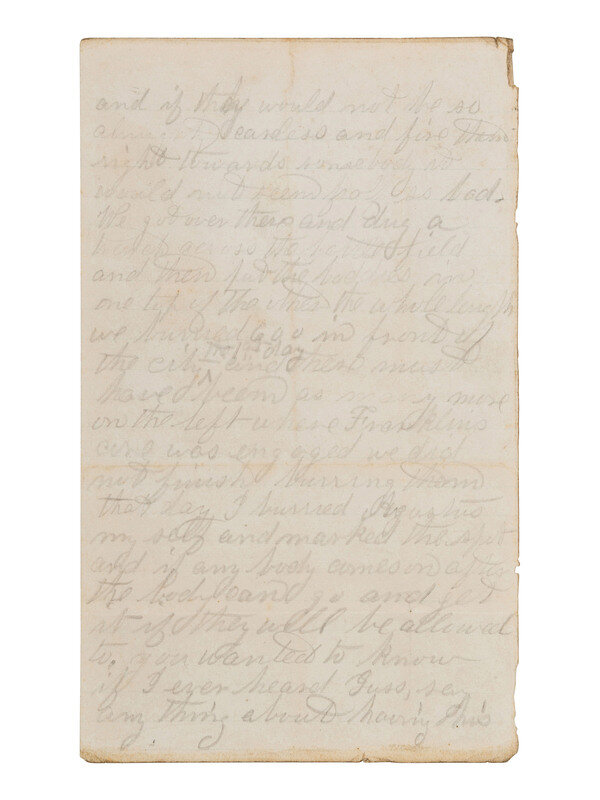 and if they would not be so
almighty careless and fire them
right towards somebody it
would not seem so bad.
We got over there and dug a
across the field
and then put the bodies in
one top of the other the whole length
we burried 660 in front of
the city the 1st day and there must
have been as many more
on the left where Franklins
core was engaged we did
not finish burring them
that day I burried Agustus
my self and marked the spot
and if any body comes on after
the bod cane go and get
it if they will be allowed
to. you wanted to know
if I ever heard Guss, say
any thing about having his